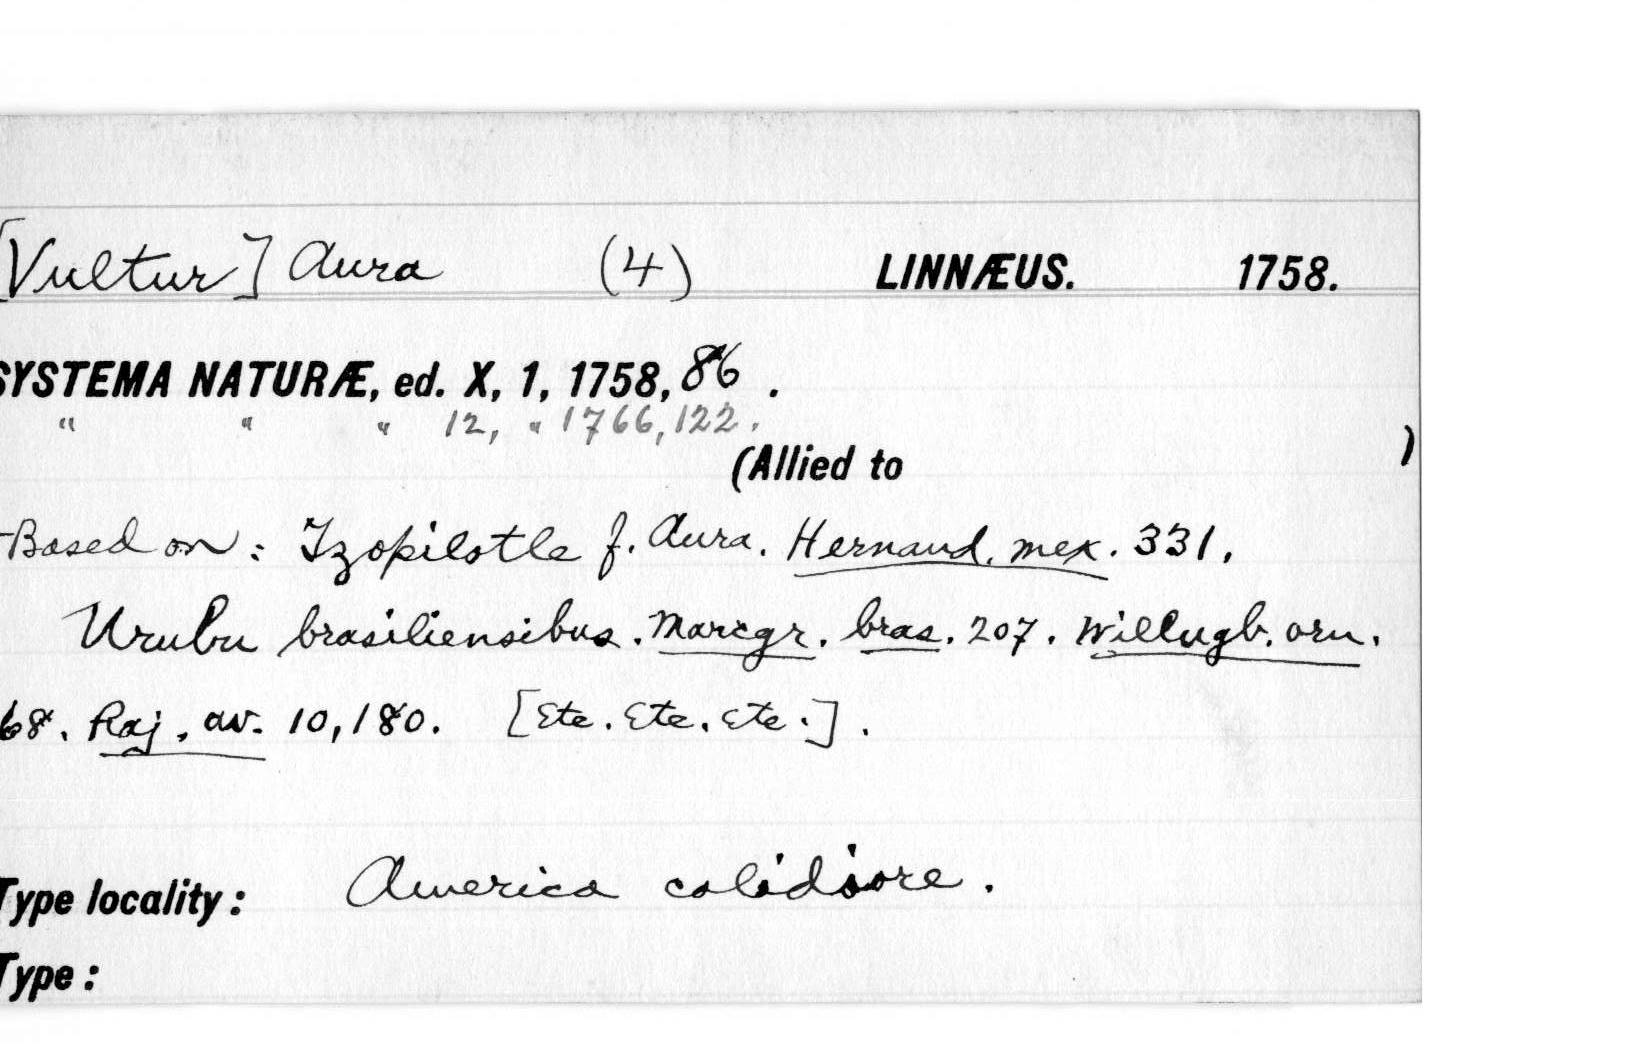 [Vultur] Aura (4) LINNÆUS. 1758.
SYSTEMA NATURÆ, ed. X, 1, 1758, 86.
" " " 12, " 1766, 122.
(Allied to )
Based on: Izopilotle f. Aura. Hernand. mex. 331.
Urubu brasiliensibus. Marcgr. bras. 207. Willugb. orn.
68. Raj. av. 10, 180. [Etc. Etc. Etc.].
Type locality: America calidiore.
Type: